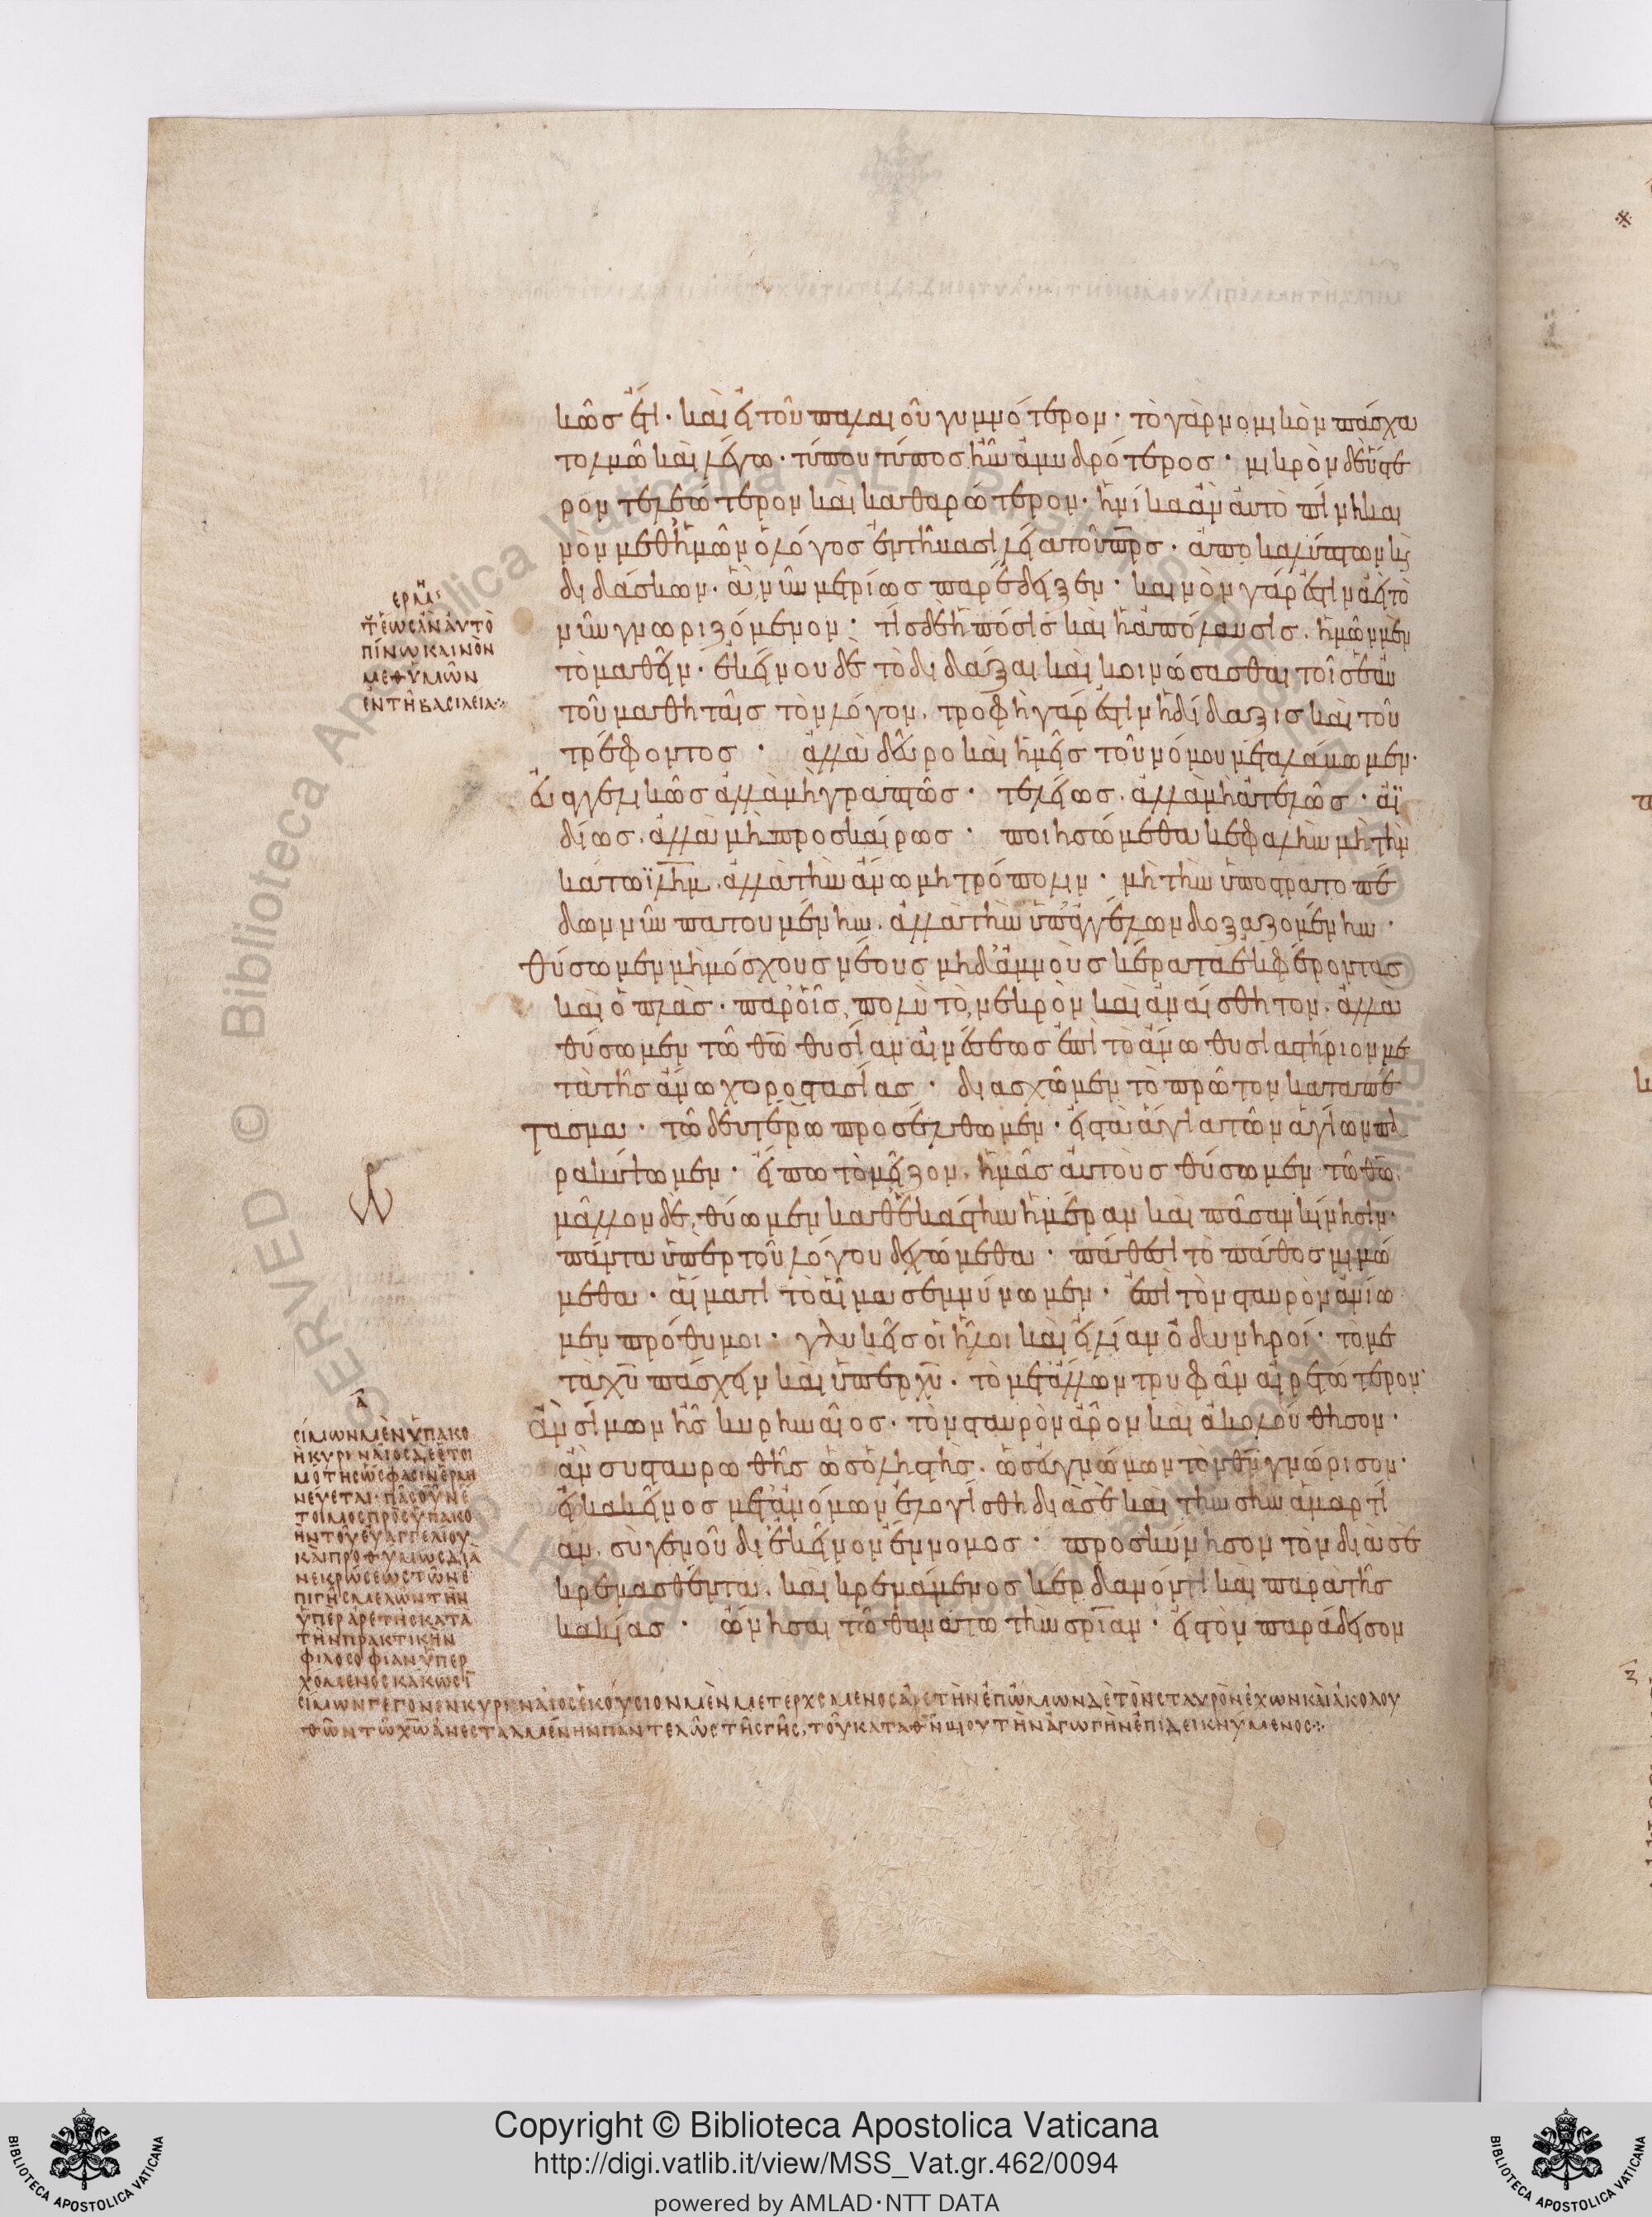 κῶσ ἔτι· καὶ εἰ τοῦ παλαιοῦ γυμνότερον· τὸ γὰρ νομικὸν πάσχα
τολμῶ καὶ λέγω· τύπου τύποσ ἦν ἀμυδρότεροσ· μικρὸν δὲ ὕστε
ρον τελεώτερον καὶ καθαρώτερον· ἡνίκα ἂν αὐτὸ πίνη και
νὸν μεθ ἡμῶν ὁ λόγοσ ἐν τῆ βασιλεία τοῦ πρσ· ἀποκαλύπτων κὶ
διδάσκων· ἃ νῦν μετρίωσ παρέδειξεν· καινὸν γάρ ἐστιν ἀεὶ τὸ
νῦν γνωριζόμενον· τίσ δὲ ἡ πόσισ καὶ ἡ ἀπόλαυσισ. ἡμῶν μὲν
τὸ μαθεῖν· ἐκείνου δὲ τὸ διδάξαι καὶ κοινώσασθαι τοῖσ ἑαυ
τοῦ μαθηταῖσ τὸν λόγον. τροφὴ γάρ ἐστιν ἡ δίδαξισ καὶ τοῦ
τρέφοντοσ· ἀλλὰ δεῦρο καὶ ἡμεῖσ τοῦ νόμου μεταλάβωμεν·
εὐαγγελικῶσ ἀλλὰ μὴ γραπτῶσ· τελείωσ. ἀλλὰ μὴ ἀτελῶσ· ἀϊ
δίωσ. ἀλλὰ μὴ προσκαίρωσ· ποιησώμεθα κεφαλὴν μὴ τὴν
κάτω ϊλημ. ἀλλὰ τὴν ἄνω μητρόπολιν· μὴ τὴν ὑπὸ στρατοπέ
δων νῦν πατουμένην. ἀλλὰ τὴν ὑπ ἀγγέλων δοξαζομένην·
θύσωμεν μὴ μόσχουσ νέουσ μηδ ἀμνοὺσ κέρατα ἐκφέροντασ
καὶ ὁπλὰσ· παρ οἷσ, πολὺ τὸ, νεκρὸν καὶ ἀναίσθητον. ἀλλὰ
θύσωμεν τῶ θῶ θυσίαν αἰνέσεωσ ἐπὶ τὸ ἄνω θυσιαστήριον με
τὰ τῆσ ἄνω χοροστασίασ· διασχῶμεν τὸ πρῶτον καταπέ
τασμα· τῶ δευτέρω προσέλθωμεν· εἰσ τὰ ἅγια τῶν ἁγίων πα
ρακύψωμεν· εἴπω τὸ μεῖζον. ἡμᾶσ αὐτοὺσ θύσωμεν τῶ θῶ.
μᾶλλον δὲ, θύωμεν καθ ἑκάστην ἡμέραν καὶ πᾶσαν κίνησιν·
πάντα ὑπὲρ τοῦ λόγου δεχώμεθα· πάθεσι τὸ πάθοσ μιμώ
μεθα· αἵματι τὸ αἷμα σεμνύνωμεν· ἐπὶ τὸν σταυρὸν ἀνίω
μεν πρόθυμοι· γλυκεῖσ οἱ ἧλοι καὶ εἰ λίαν ὀδυνηροί· τὸ με
τὰ χυ πάσχειν καὶ ὑπὲρ χυ. τὸ μετ ἄλλων τρυφᾶν αἱρετώτερον·
ἂν σίμων ἦσ κυρηναῖοσ· τὸν σταυρὸν ἆρον καὶ ἀκολούθησον·
ἂν συσταυρωθῆσ ὡσ ὁ ληστὴσ. ὡσ εὐγνώμων τὸν θν γνώρισον·
εἰ κἀκεῖνοσ μετὰ ἀνόμων ἐλογίσθη διὰ σὲ καὶ τὴν σὴν ἁμαρτί
αν. σὺ γενοῦ δι ἐκεῖνον ἔννομοσ· προσκύνησον τὸν διὰ σὲ
κρεμασθέντα. καὶ κρεμάμενοσ κέρδανόν τι καὶ παρὰ τῆσ
κακίασ· ὤνησαι τῶ θανάτω τὴν σρίαν· εἰσ τὸν παράδεισον
ἕωσ ἂν αὐτὸ
πίνω καινὸν
μεθ ὑμῶν
ἐν τῆ βασιλεία
α
σίμων μὲν ὑπακο
ὴ κυρηναῖοσ δὲ ἑτοι
μότησ ὡσ φασὶν ἑρμη
νεύεται· πᾶσ οὖν ἑ
τοῖμοσ πρὸσ ὑπακο
ὴν τοῦ εὐαγγελίου
καὶ προθύμωσ διὰ
νεκρώσεωσ τῶν ἐ
πὶ γῆσ μελῶν τὴν
ὑπὲρ ἀρετῆσ κατὰ
τὴν πρακτικὴν
φιλοσοφίαν ὑπερ
χόμενοσ κάκωσι
σίμων γέγονεν κυρηναῖοσ ἑκούσιον μὲν μετερχόμενοσ ἀρετὴν ἐπ ὤμων δὲ τὸν σταυρὸν ἔχων καὶ ἀκολου
θῶν τῶ χω ἀνεσταλμένην παντελῶσ τῆσ γῆσ. τοῦ κατὰ θν βίου τὴν ἀγωγὴν ἐπιδεικνύμενοσ
Copyright © Biblioteca Apostolica Vaticana
http://digi.vatlib.it/view/MSS_Vat.gr.462/0094
powered by AMLAD·NTT DATA
BIBLIOTECA APOSTOLICA VATICANA
BIBLIOTECA APOSTOLICA VATICANA